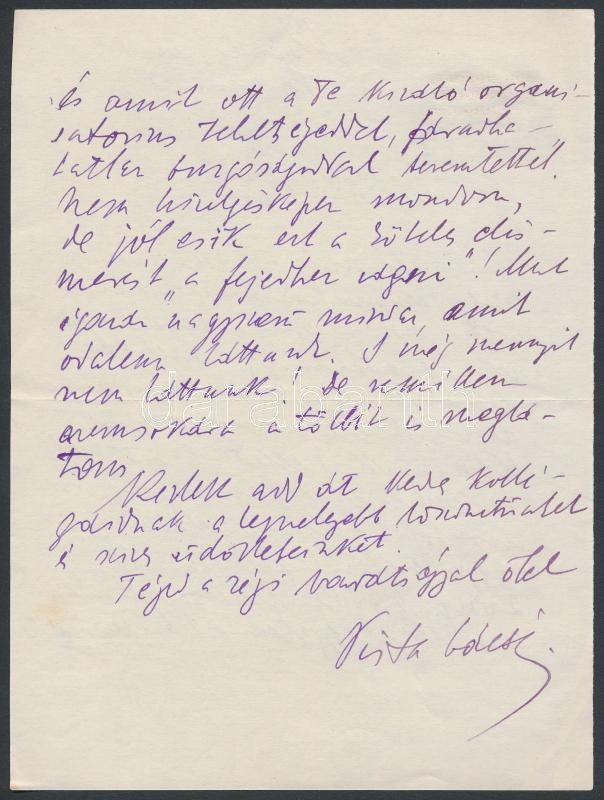 és amit ott a Te kiváló organi-
satorius tehetségeddel, fáradha-
tatlan buzgóságoddal teremtettél.
Nem hizelgésképen mondom,
de jól esik ezt a köteles elis-
merést „a fejedhez vágni”! Mert
igazán nagyszerű mindaz amit
odalenn láttunk. S még mennyit
nem láttunk! De remélem
nemsokára a többit is meglá-
tom
Kérlek add át kedves kollé-
gáidnak a legmelegebb köszönetünket
és szives üdvözleteinket.
Téged a régi barátsággal ölel
Vista bácsi.
darabanth